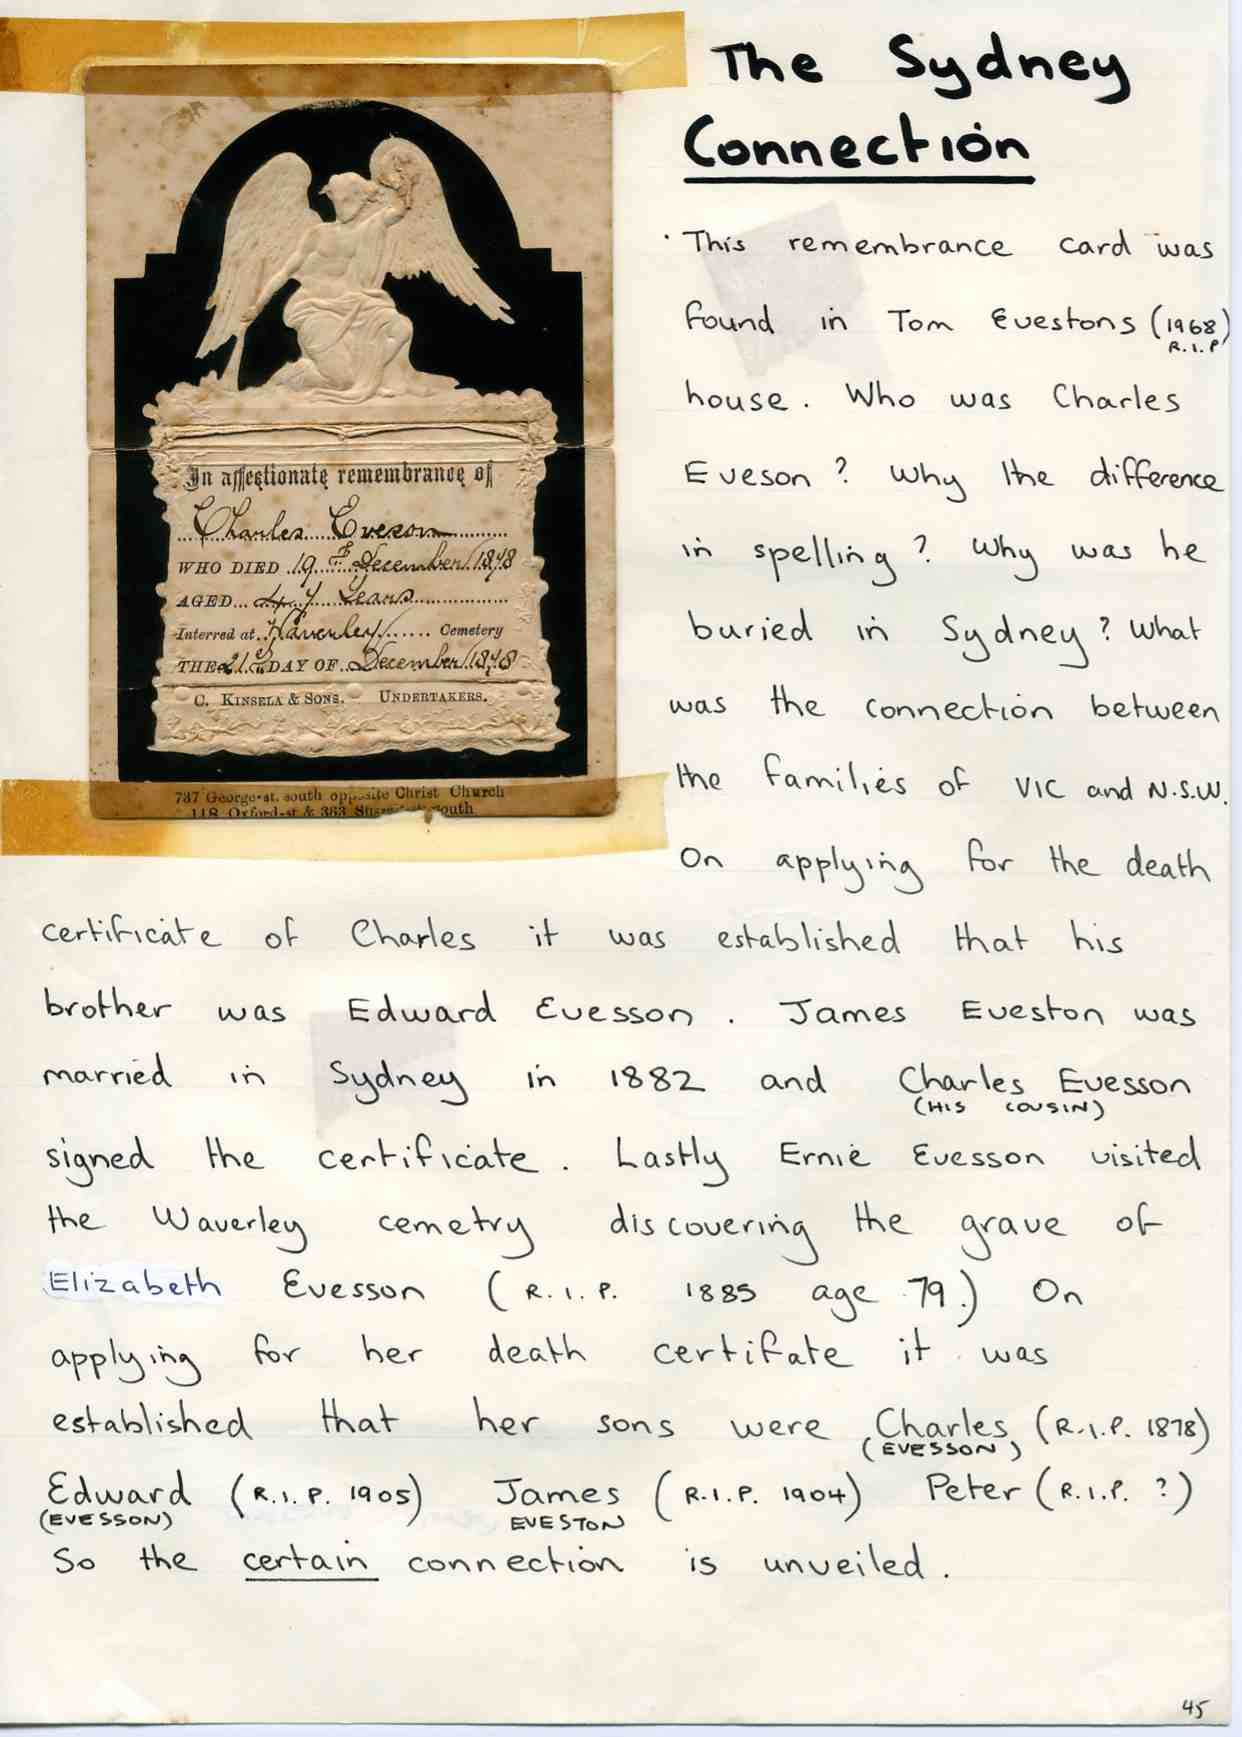 The Sydney
Connection
This remembrance card was
found in Tom Evestons (1968)
R.I.P
house. Who was Charles
Eveson? Why the difference
in spelling? Why was he
buried in Sydney? What
was the connection between
the families of VIC and N.S.W.
On applying for the death
certificate of Charles it was established that his
brother was Edward Evesson. James Eveston was
married in Sydney in 1882 and Charles Evesson
(HIS COUSIN)
signed the certificate. Lastly Ernie Evesson visited
the Waverley cemetry discovering the grave of
Elizabeth Evesson (R.I.P. 1885 age 79.) On
applying for her death certifate it was
established that her sons were Charles (R.I.P. 1878)
(EVESSON)
Edward (R.I.P. 1905) James (R.I.P. 1904) Peter (R.I.P. ?)
(EVESSON) EVESTON
So the certain connection is unveiled.
45
In affectionate remembrance of
Charles Eveson
WHO DIED 19th December 1878
AGED 47 Years
Interred at Waverley Cemetery
THE 21st DAY OF December 1878
C. KINSELA & SONS. UNDERTAKERS.
737 George-st. south opposite Christ Church
118 Oxford-st & 363 south